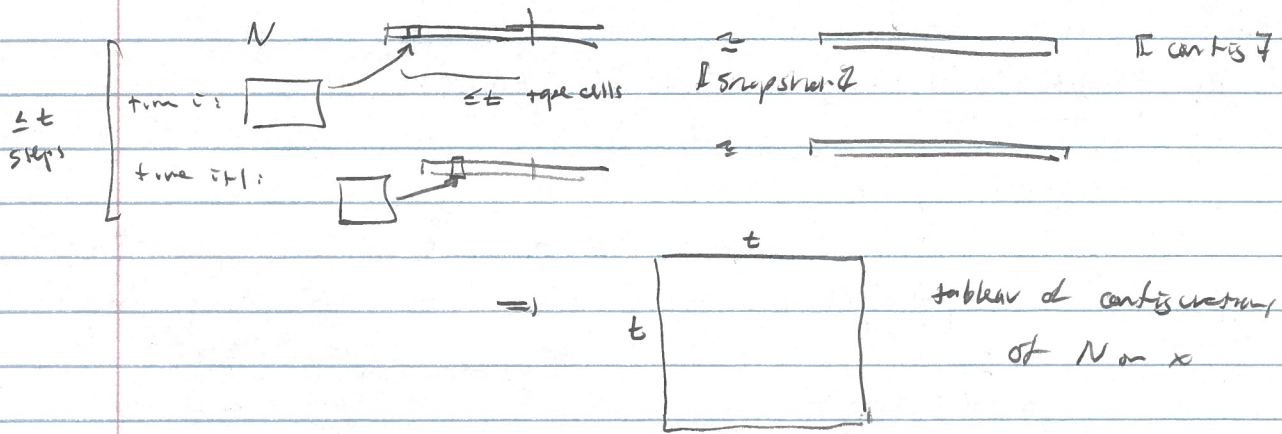 N
≈
[[ config ]]
time i:
≤ t tape cells
[[ snapshot ]]
≤ t
steps
time i+1:
≈
t
⇒
t
tableau of configurations
of N on x